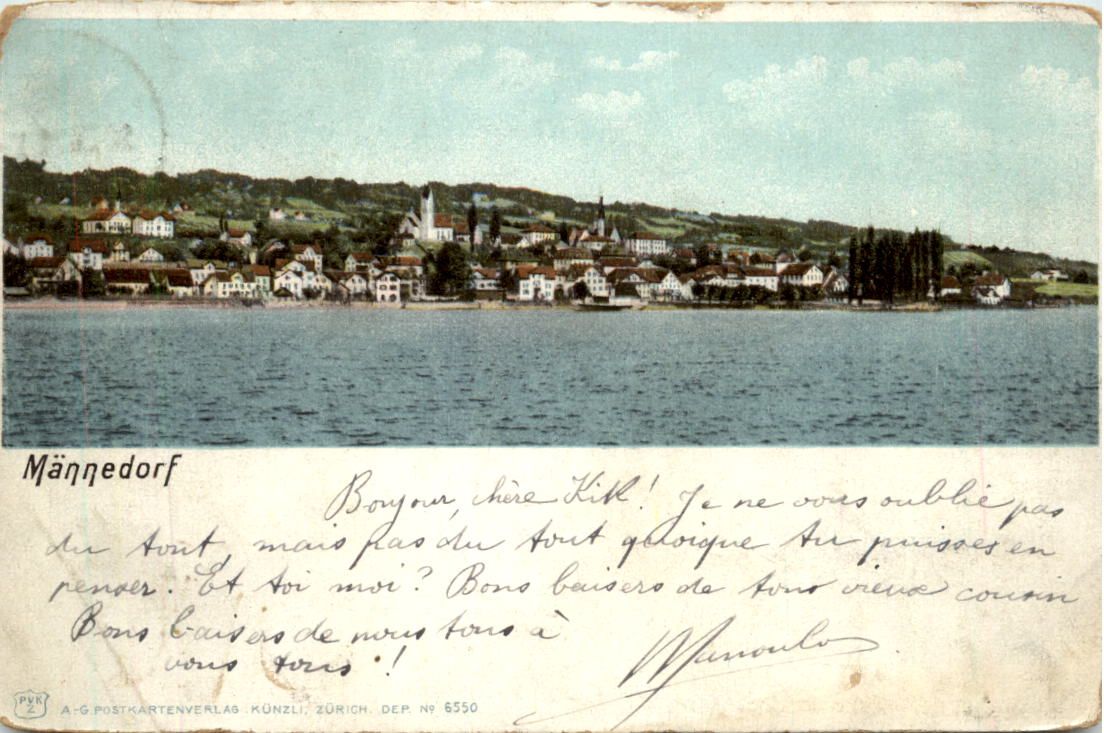 Männedorf
Bonjour, chère Kitl! Je ne vous oublie pas
du tout, mais pas du tout quoique tu puisses en
penser. Et toi moi? Bons baisers de tons vieux cousin
Bons baisers de nous tous à
vous tous!
Manoulo.
PVK
Z
A.-G. POSTKARTENVERLAG KÜNZLI, ZÜRICH. DEP. No 6550